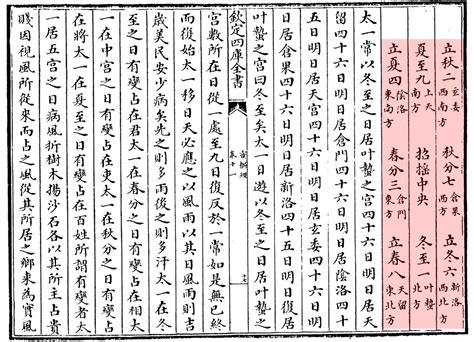 立秋二 玄委西南方 秋分七 倉果西方 立冬六 新洛西北方
夏至九 上天南方 招搖中央 冬至一 叶蟄北方
立夏四 陰洛東南方 春分三 倉門東方 立春八 天留東北方
太一常以冬至之日居叶蟄之宮四十六日明日居天
留四十六日明日居倉門四十六日明日居陰洛四十
五日明日居天宮四十六日明日居玄委四十六日明日
居倉果四十六日明日居新洛四十五日明日復居
叶蟄之宮曰冬至矣太一日遊以冬至之日居叶蟄之
欽定四庫全書 靈樞經 卷十一
宮數所在日從一處至九日復反于一常如是無已終
而復始太一移日天必應之以風雨以其日風雨則吉
歲美民安少病矣先之則多雨後之則多汗太一在冬
至之日有變占在君太一在春分之日有變占在相太
一在中宮之日有變占在吏太一在秋分之日有變占
在將太一在夏至之日有變占在百姓所謂有變者太
一居五宮之日病風折樹木揚沙石各以其所主占貴
賤因視風所從來而占之風從其所居之鄉來為實風